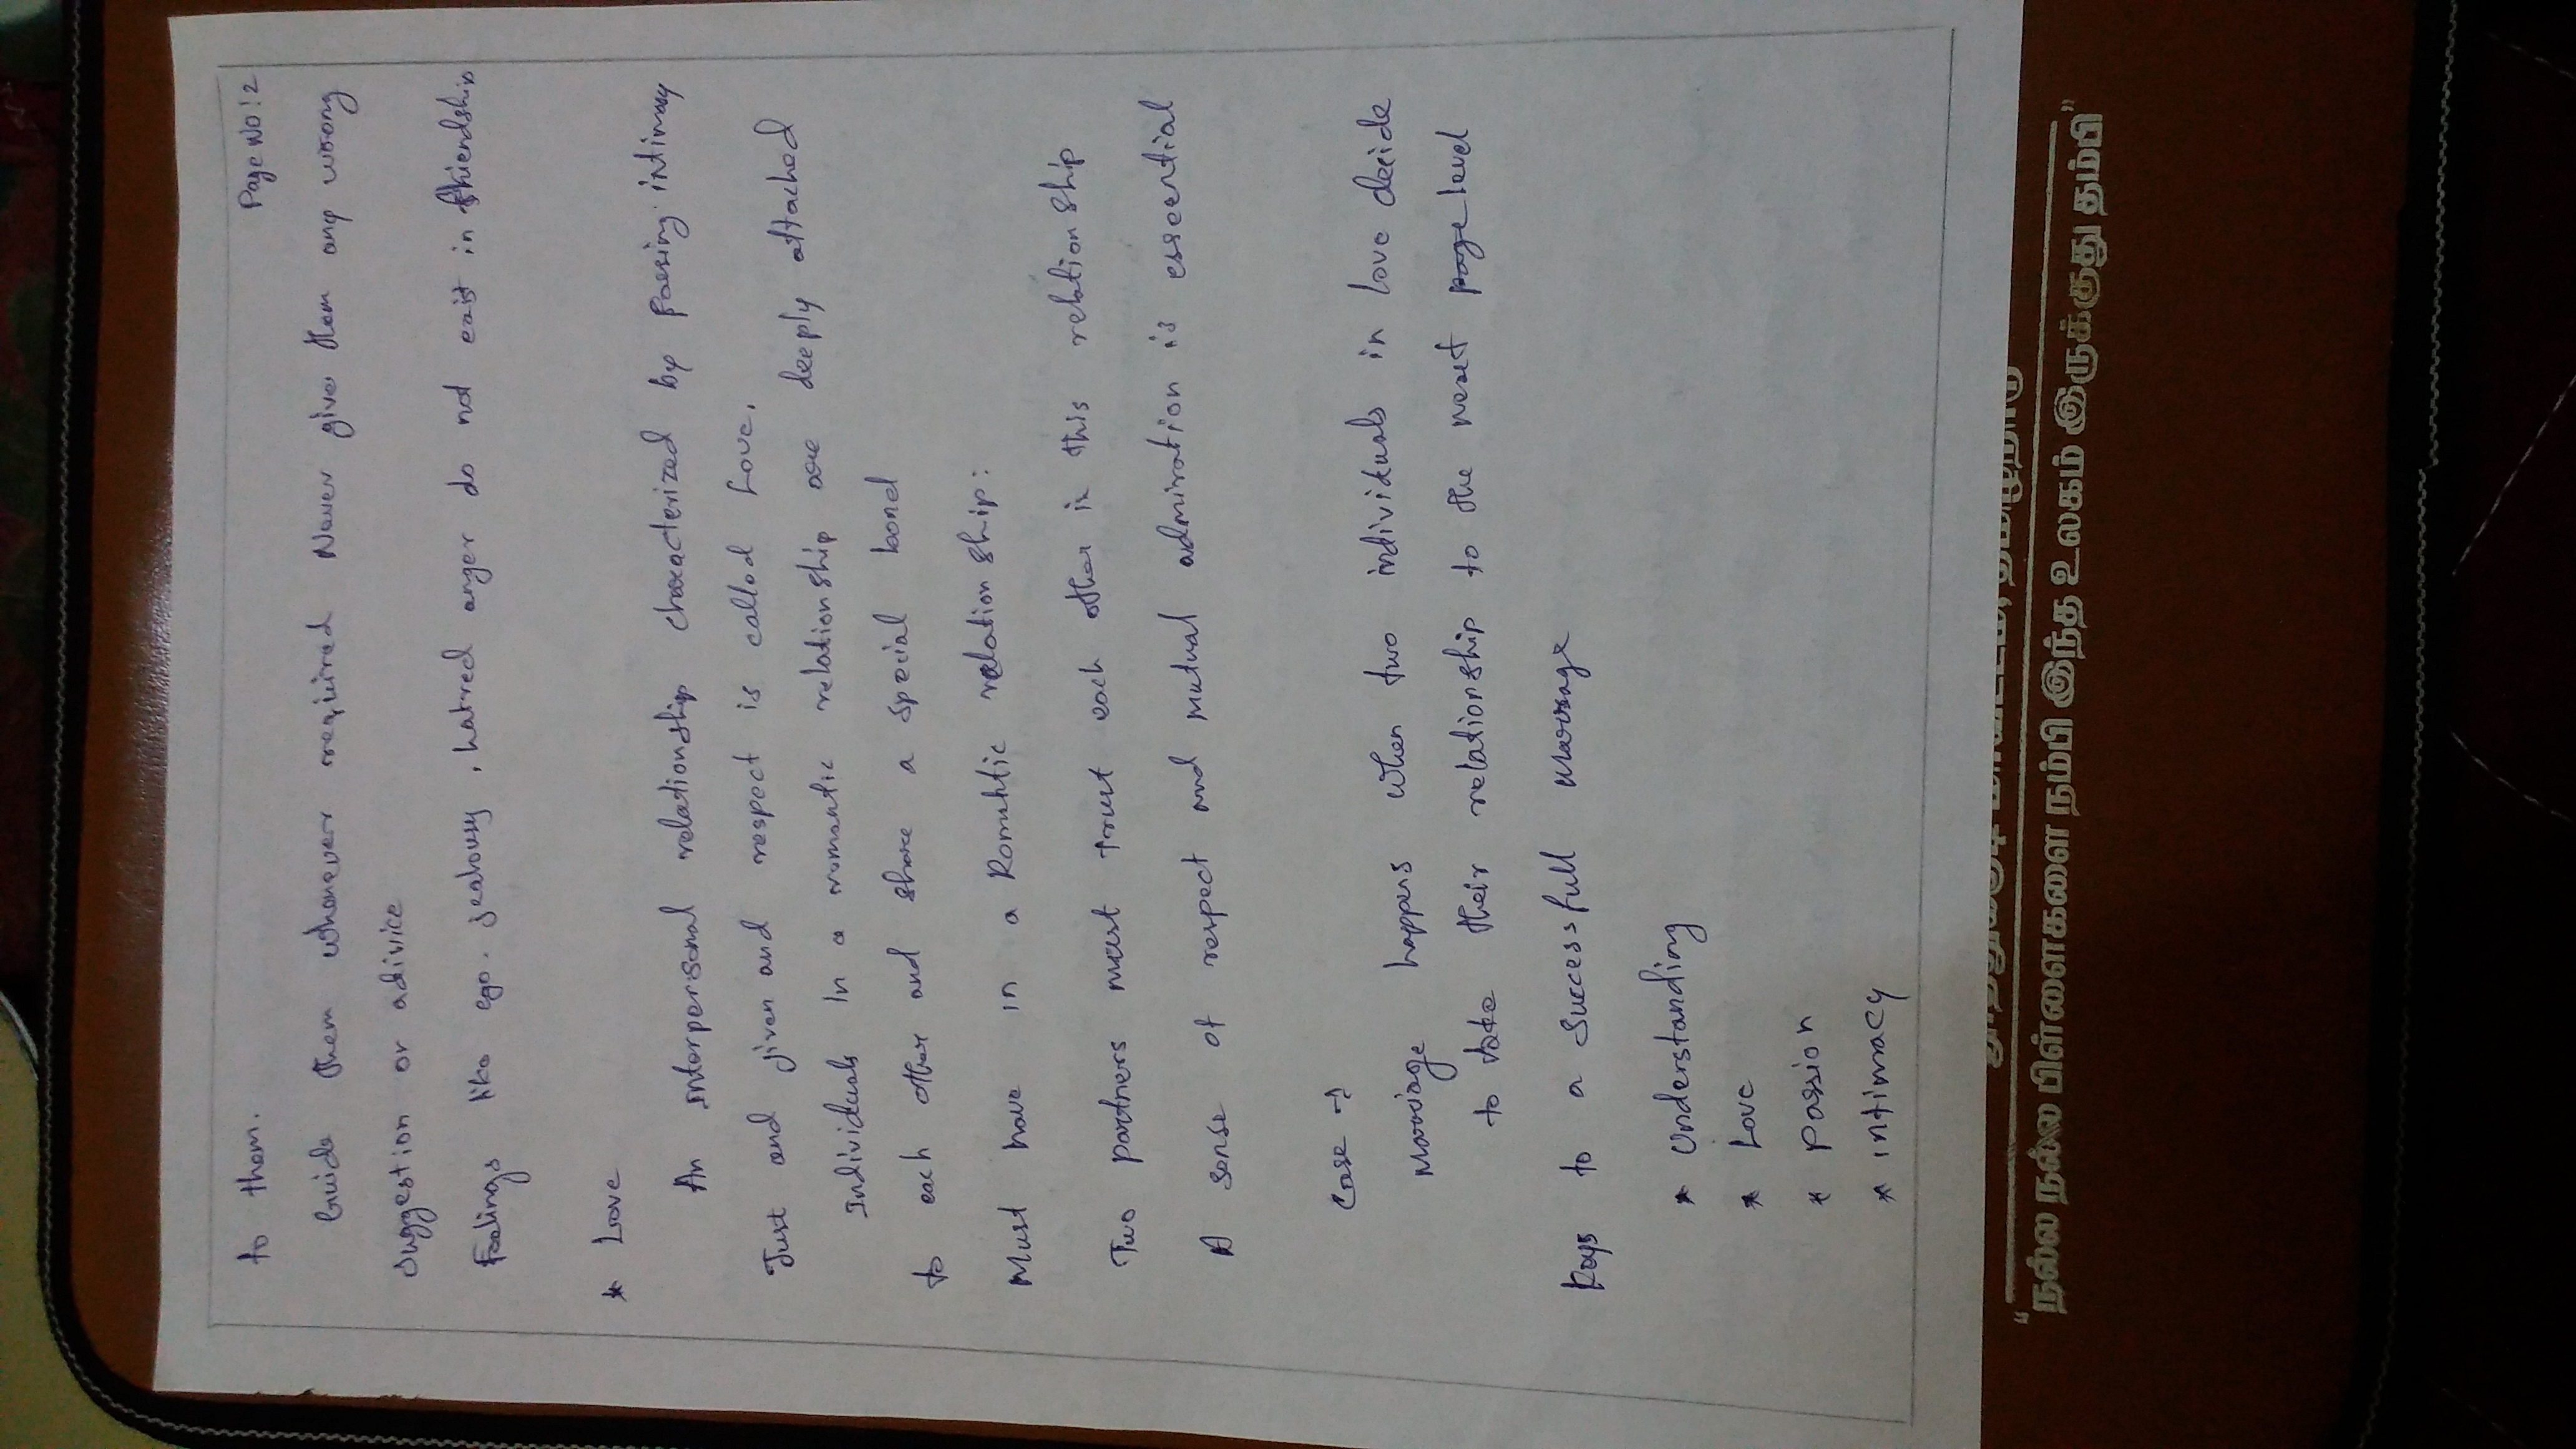 Page No: 2
to them.
Guide them whenever required Never give them any wrong
suggestion or adivice
Feelings like ego. jealousy, hatred anger do not exist in friendship
* Love
An interpersonal relationship characterized by passing intimacy
Just and given and respect is called Love.
Individuals in a romantic relationship are deeply attached
to each other and share a special bond
Must have in a Romantic relationship:
Two partners must trust each other in this relationship
A sense of respect and mutual admiration is esseential
Case →
Marriage happens when two individuals in love decide
to take their relationship to the next page level
Keys to a Successfull Marriage
* Understanding
* Love
* Passion
* intimacy
"நல்ல நல்ல பிள்ளைகளை நம்பி இந்த உலகம் இருக்குது தம்பி"